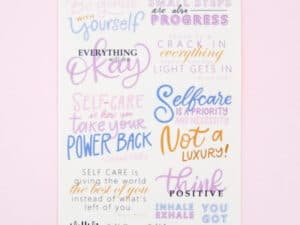 WITH
Yourself
SMALL STEPS
are also
PROGRESS
EVERYTHING
okay
CRACK IN
everything
LIGHT GETS IN
SELF-CARE
is how you
take your
POWER BACK
Selfcare
IS A PRIORITY
AND NECESSITY
Not a
LUXURY!
SELF CARE IS
giving the world
the best of you
instead of what's
left of you.
think
POSITIVE
INHALE
EXHALE
YOU
GOT